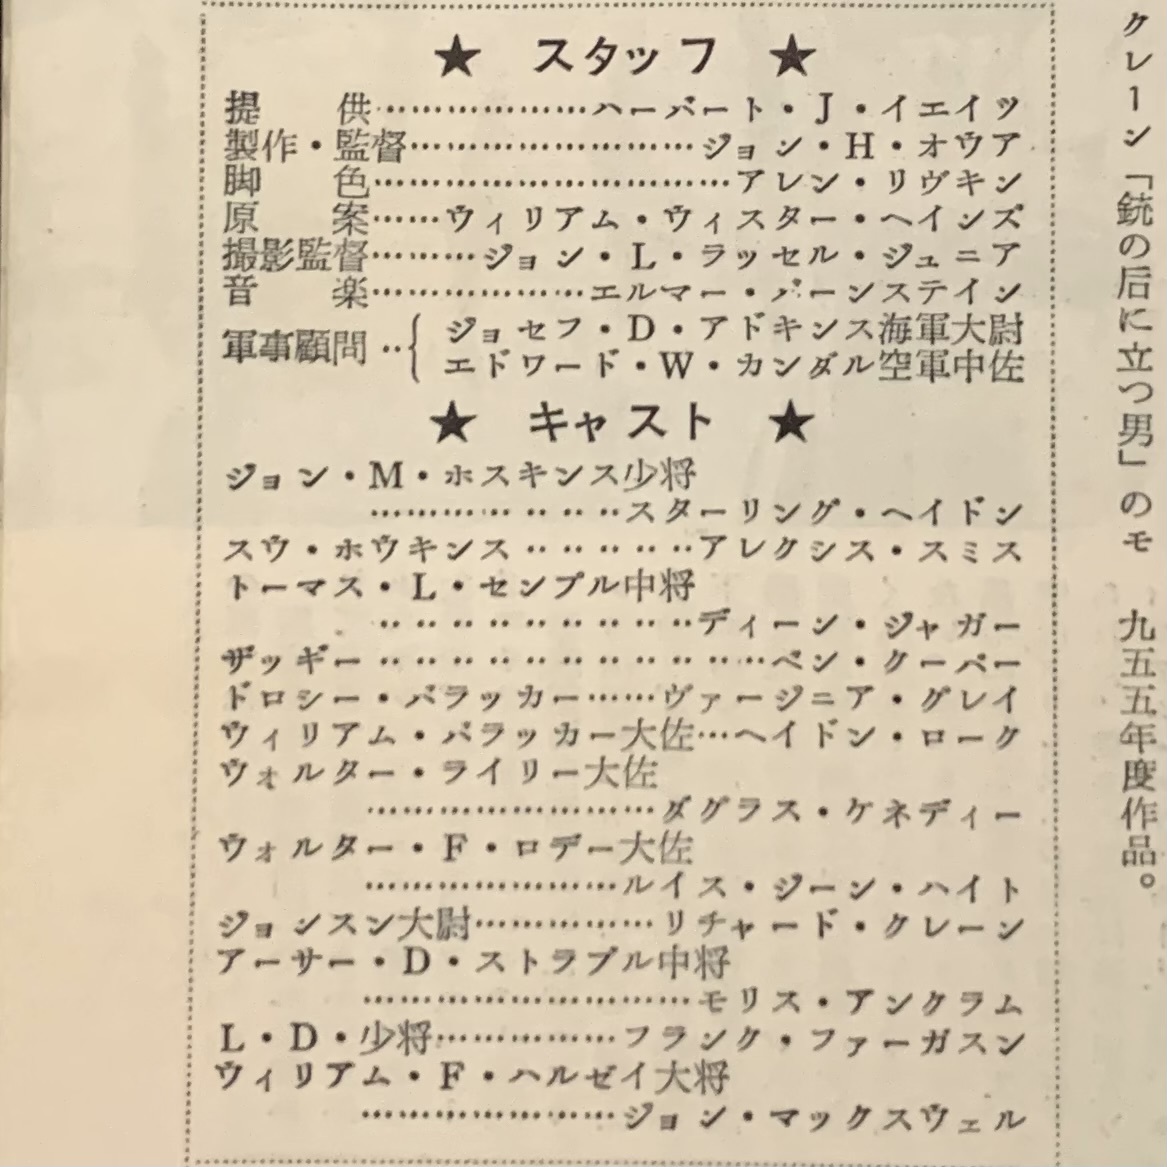 ★ スタッフ ★
提供……………ハーバート・J・イエイツ
製作・監督……………ジョン・H・オウア
脚色……………アレン・リヴキン
原案……ウィリアム・ウィスター・ヘインズ
撮影監督………ジョン・L・ラッセル・ジュニア
音楽……………エルマー・バーンステイン
軍事顧問‥{ジョセフ・D・アドキンス海軍大尉
エドワード・W・カンダル空軍中佐
★ キャスト ★
ジョン・M・ホスキンス少将
……………スターリング・ヘイドン
スウ・ホウキンス……………アレクシス・スミス
トーマス・L・センプル中将
……………ディーン・ジャガー
ザッギー……………ベン・クーパー
ドロシー・バラッカー……ヴァージニア・グレイ
ウィリアム・バラッカー大佐…ヘイドン・ローク
ウォルター・ライリー大佐
……………ダグラス・ケネディー
ウォルター・F・ロデー大佐
……………ルイス・ジーン・ハイト
ジョンスン大尉……………リチャード・クレーン
アーサー・D・ストラブル中将
……………モリス・アンクラム
L・D・少将……………フランク・ファーガスン
ウィリアム・F・ハルゼイ大将
……………ジョン・マックスウェル
クレーン「銃の后に立つ男」のモ
九五五年度作品。